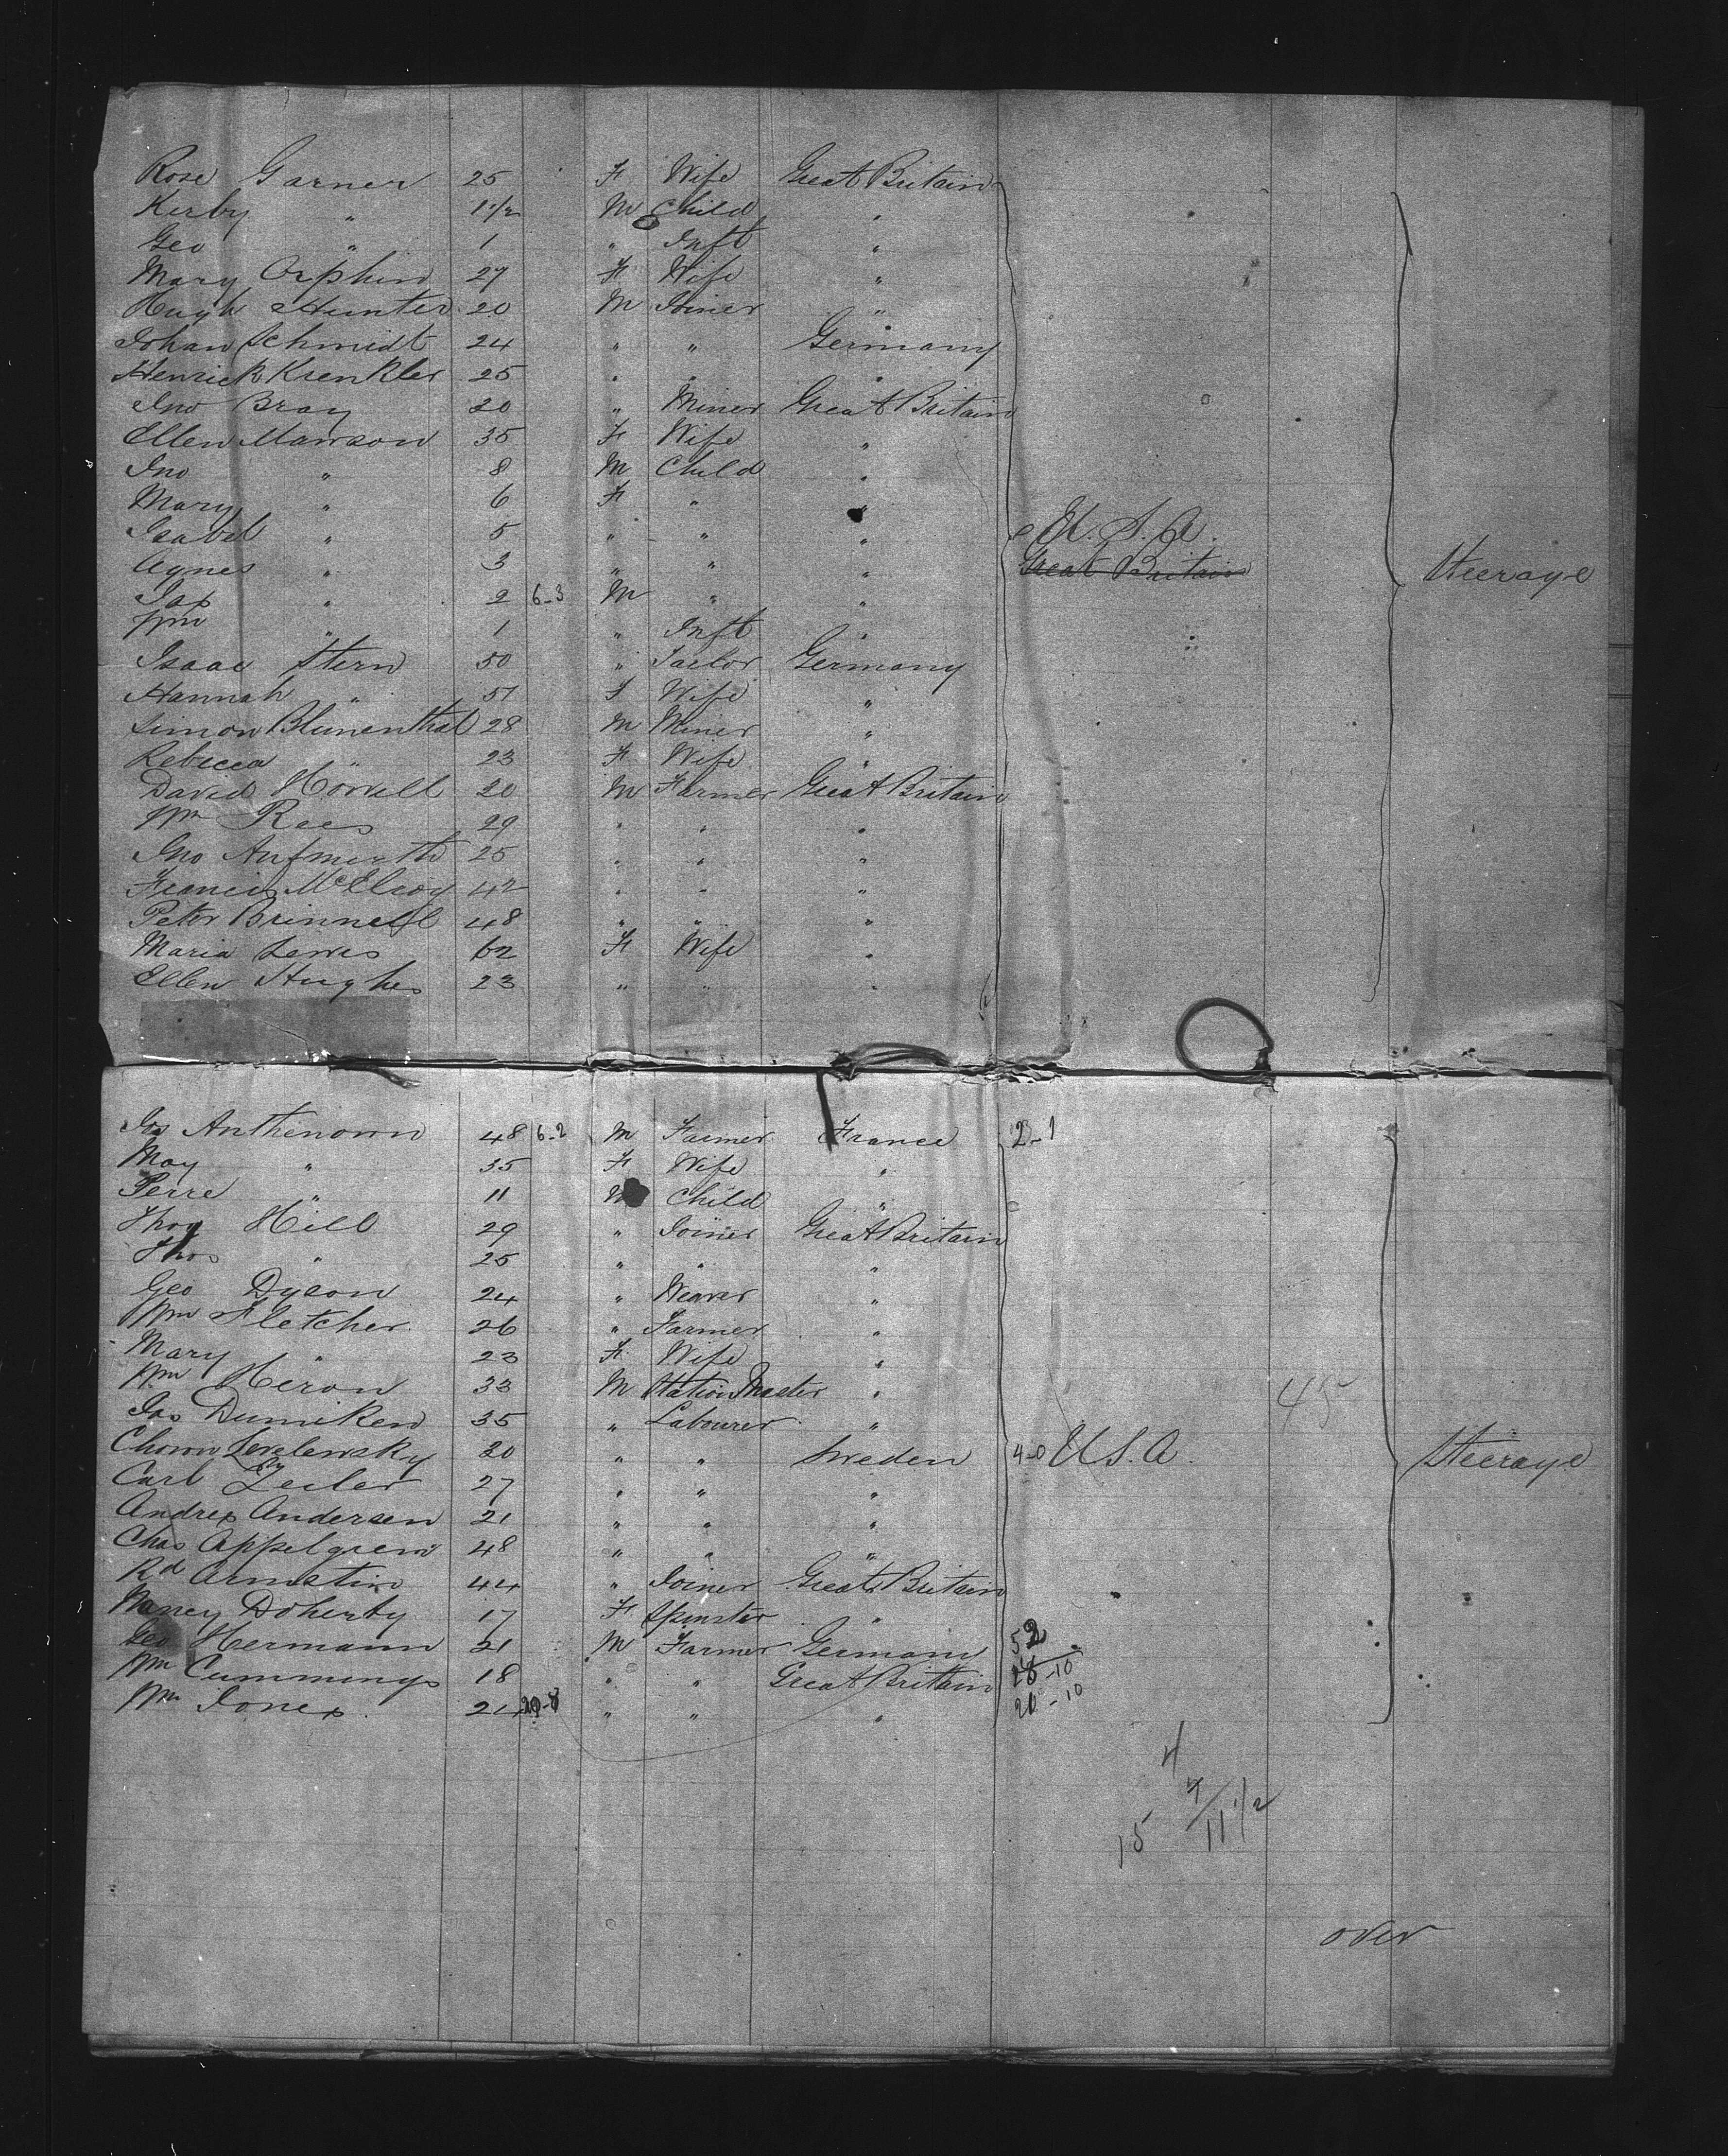 Rose Garner 25 F Wife Great Britain
Kerby " 1 1/2 M Child "
Geo " 1 " Inft "
Mary Orphin 27 F Wife "
Hugh Hunter 20 M Joiner "
Johan Schmidt 24 " " Germany
Henrick Krenkler 25 " " "
Jno Bray 20 " Miner Great Britain
Ellen Mawson 35 F Wife "
Jno " 8 M Child "
Mary " 6 F " "
Isabel " 5 " " " U.S.A.
Agnes " 3 " " " Great Britain Steerage
Jas " 2 6-3 M " "
Wm " 1 " Inft "
Isaac Stern 50 " Tailor Germany
Hannah " 51 F Wife "
Simon Blumenthal 28 M Miner "
Rebecca " 23 F Wife "
David Howell 20 M Farmer Great Britain
Wm Rees 29 " " "
Jno 25 " " "
Francis McElroy 42 " " "
Peter Brinnell 48 " " "
Maria Lewis 62 F Wife "
Ellen Hughes 23 " " "
Jos Anthenown 48 6-2 M Farmer France 2-1
May " 35 F Wife "
Perre " 11 M Child "
Thos Hill 29 " Joiner Great Britain
Thos " 25 " " "
Geo Dyson 24 " Weaver "
Wm Fletcher 26 " Farmer "
Mary " 23 F Wife "
Wm Heron 33 M Station Master " 45
Jas Dumiken 35 " Labourer "
20 " " Sweden 4-0 U.S.A. Steerage
Carl Zeiler 27 " " "
Andrex Andersen 21 " " "
Chas Appelgren 48 " " "
Rd Armstin 44 " Joiner Great Britain
Nancy Doherty 17 F Spinster "
Geo Hermann 21 M Farmer Germany 52
Wm Cummings 18 " " Great Britain 28-10
Wm Jones 21 20-8 " " " 20-10
4
4/11 1/2
15
over